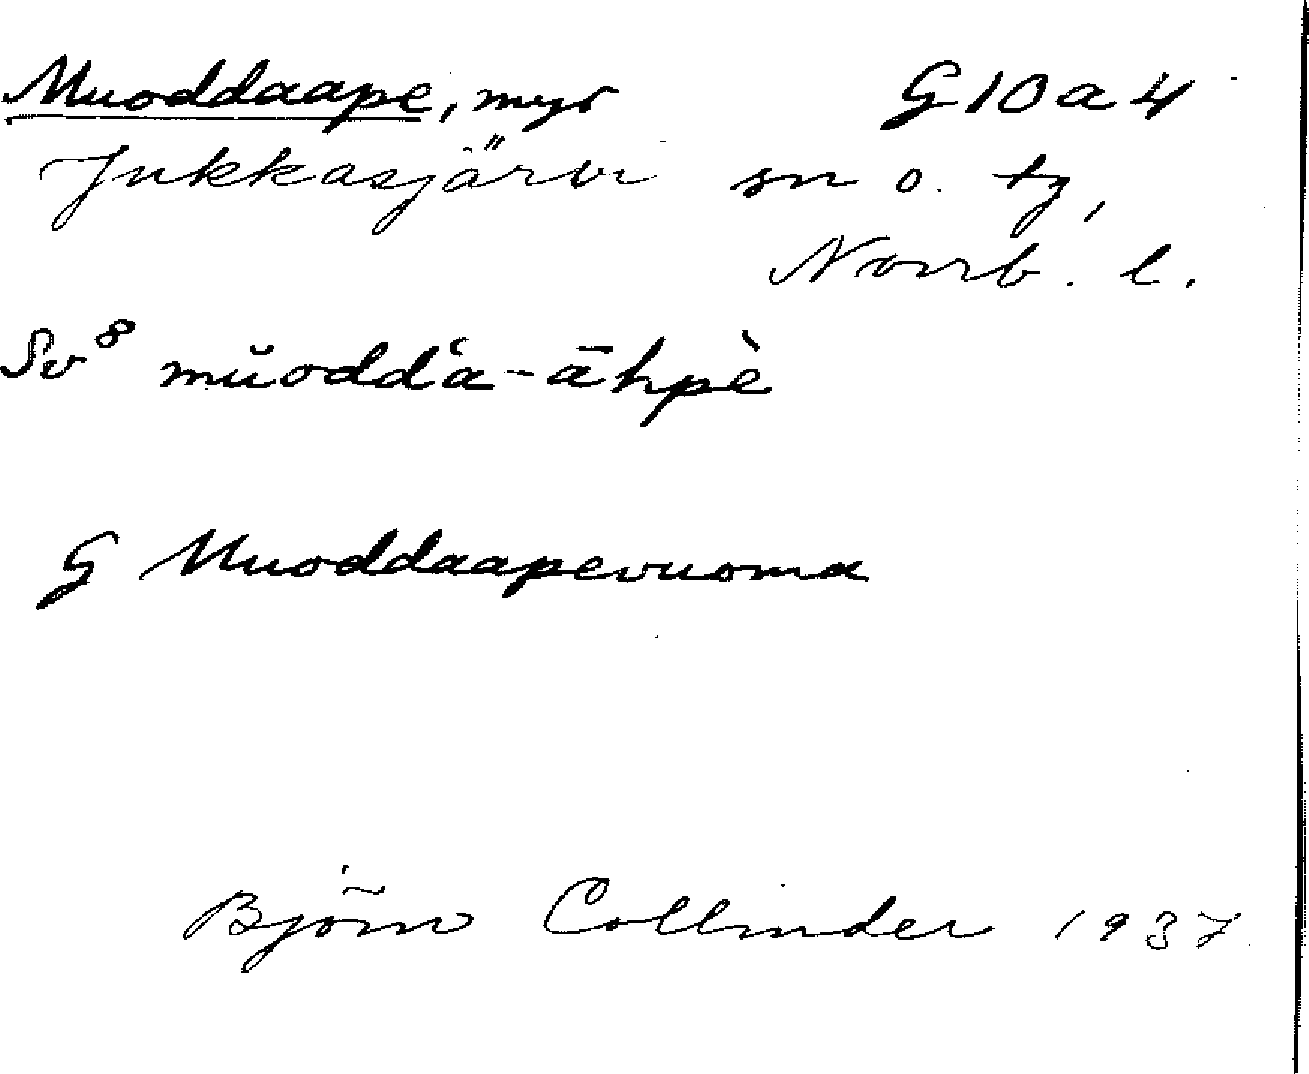 Muoddaape, myr G10a4
Jukkasjärvi sn o. tg,
Norrb. l.
Sv⁸ mŭoddʻa-āhpè
G Muoddaapevuoma
Björn Collinder 1937